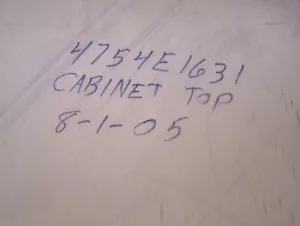 4754E1631
CABINET TOP
8-1-05